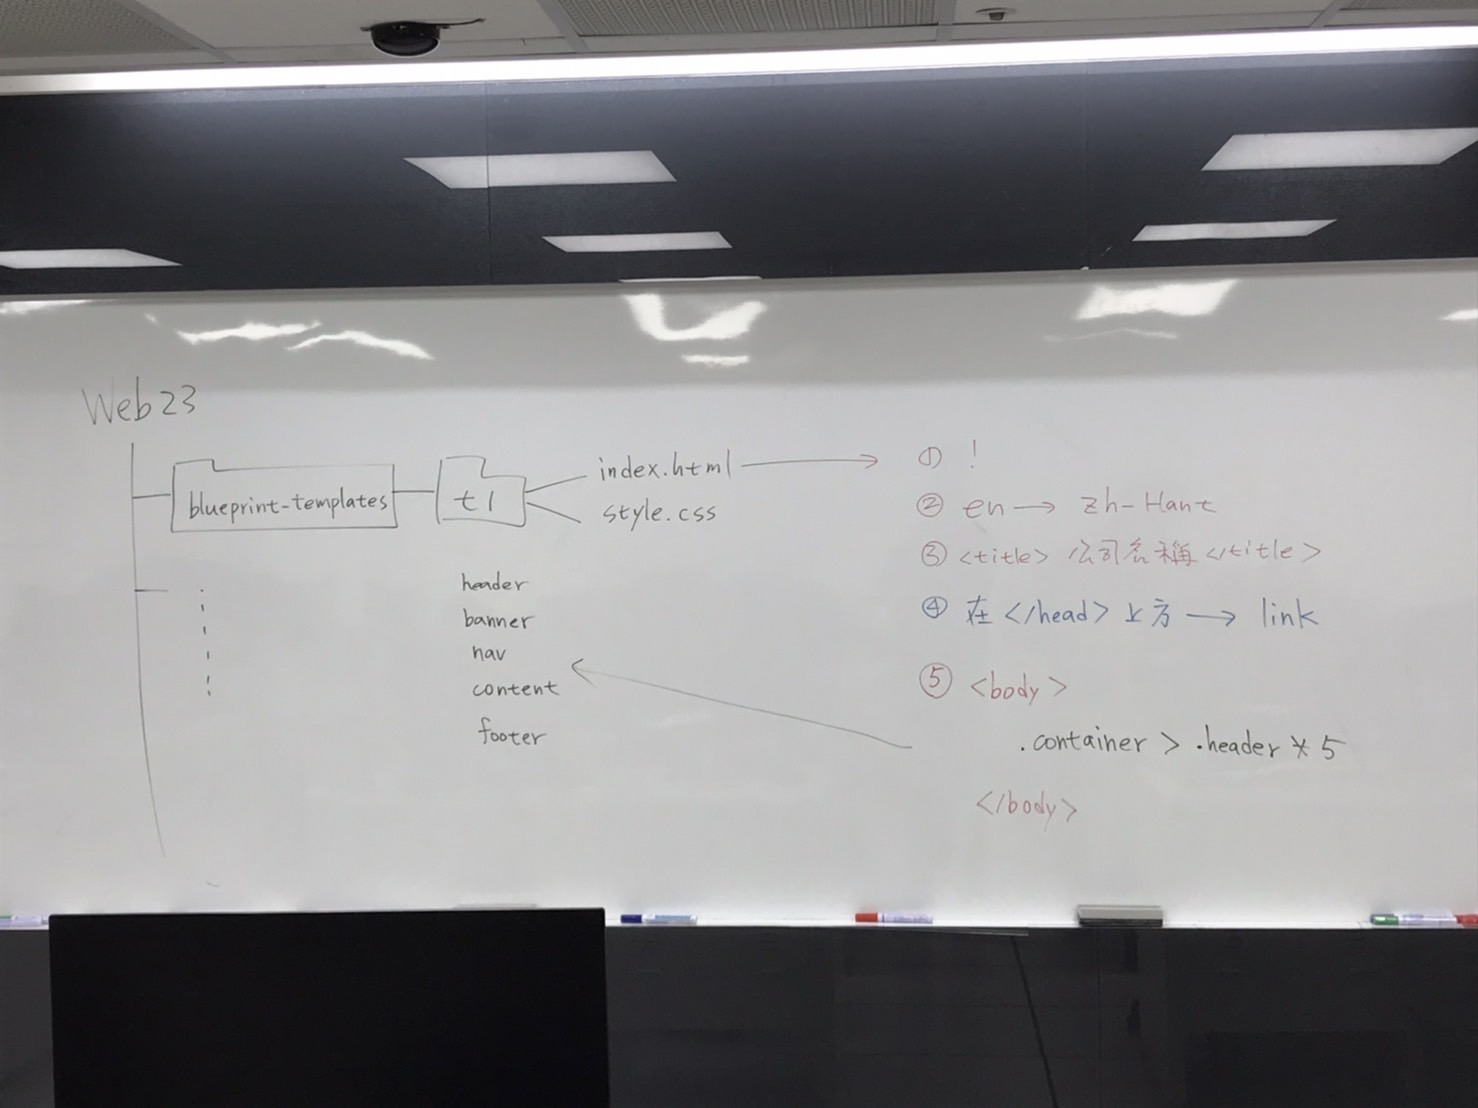 Web 23
blueprint-templates
t1
index.html
style.css
header
banner
nav
content
footer
① !
② en → zh-Hant
③ <title> 公司名稱 </title>
④ 在 </head> 上方 → link
⑤ <body>
.container > .header * 5
</body>